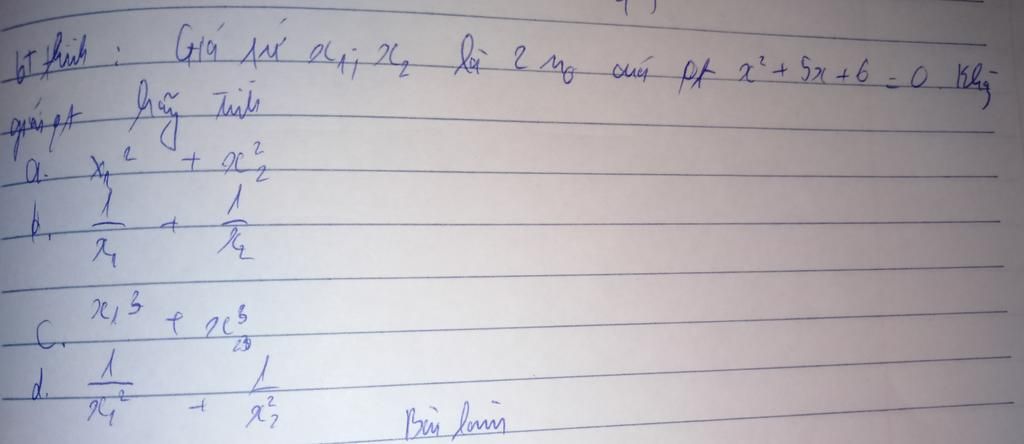 bt thêm: Giả sử x₁; x₂ là 2 n₀ của pt x² + 5x + 6 = 0. Khg
giải pt hãy tính
a. x₁² + x₂²
b. 1/x₁ + 1/x₂
c. x₁³ + x₂³
d. 1/x₁² + 1/x₂²
Bài làm